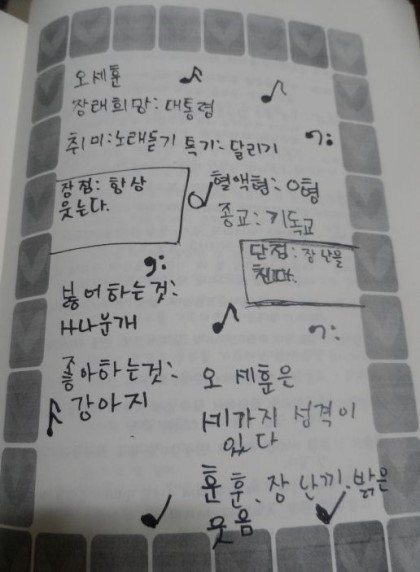 오세훈
장태희망: 대통령
취미: 노래듣기 특기: 달리기
장점: 항상
웃는다.
혈액형: O형
종교: 기독교
단점: 장난을
친다.
싫어하는것:
H나분개
좋아하는것:
강아지
오 세훈은
세가지 성격이
있다
훈훈, 장난끼, 밝은
웃음